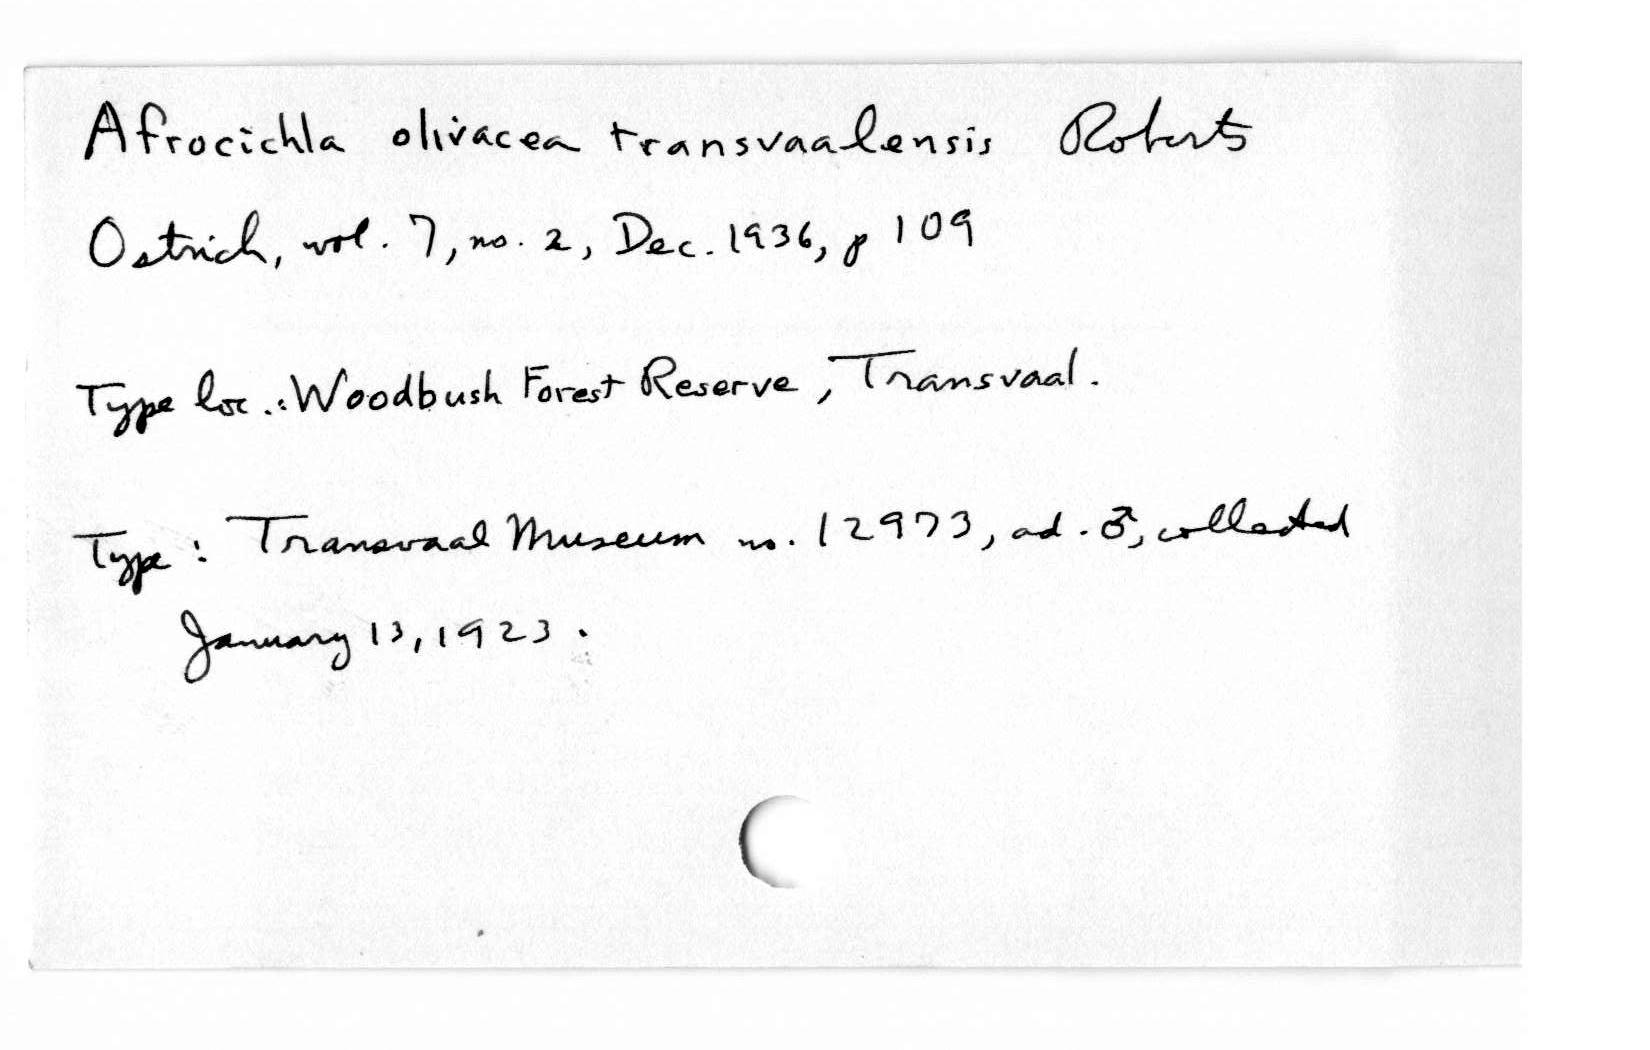 Afrocichla olivacea transvaalensis Roberts
Ostrich, vol. 7, no. 2, Dec. 1936, p 109
Type loc.: Woodbush Forest Reserve, Transvaal.
Type: Transvaal Museum no. 12973, ad. ♂, collected
January 13, 1923.